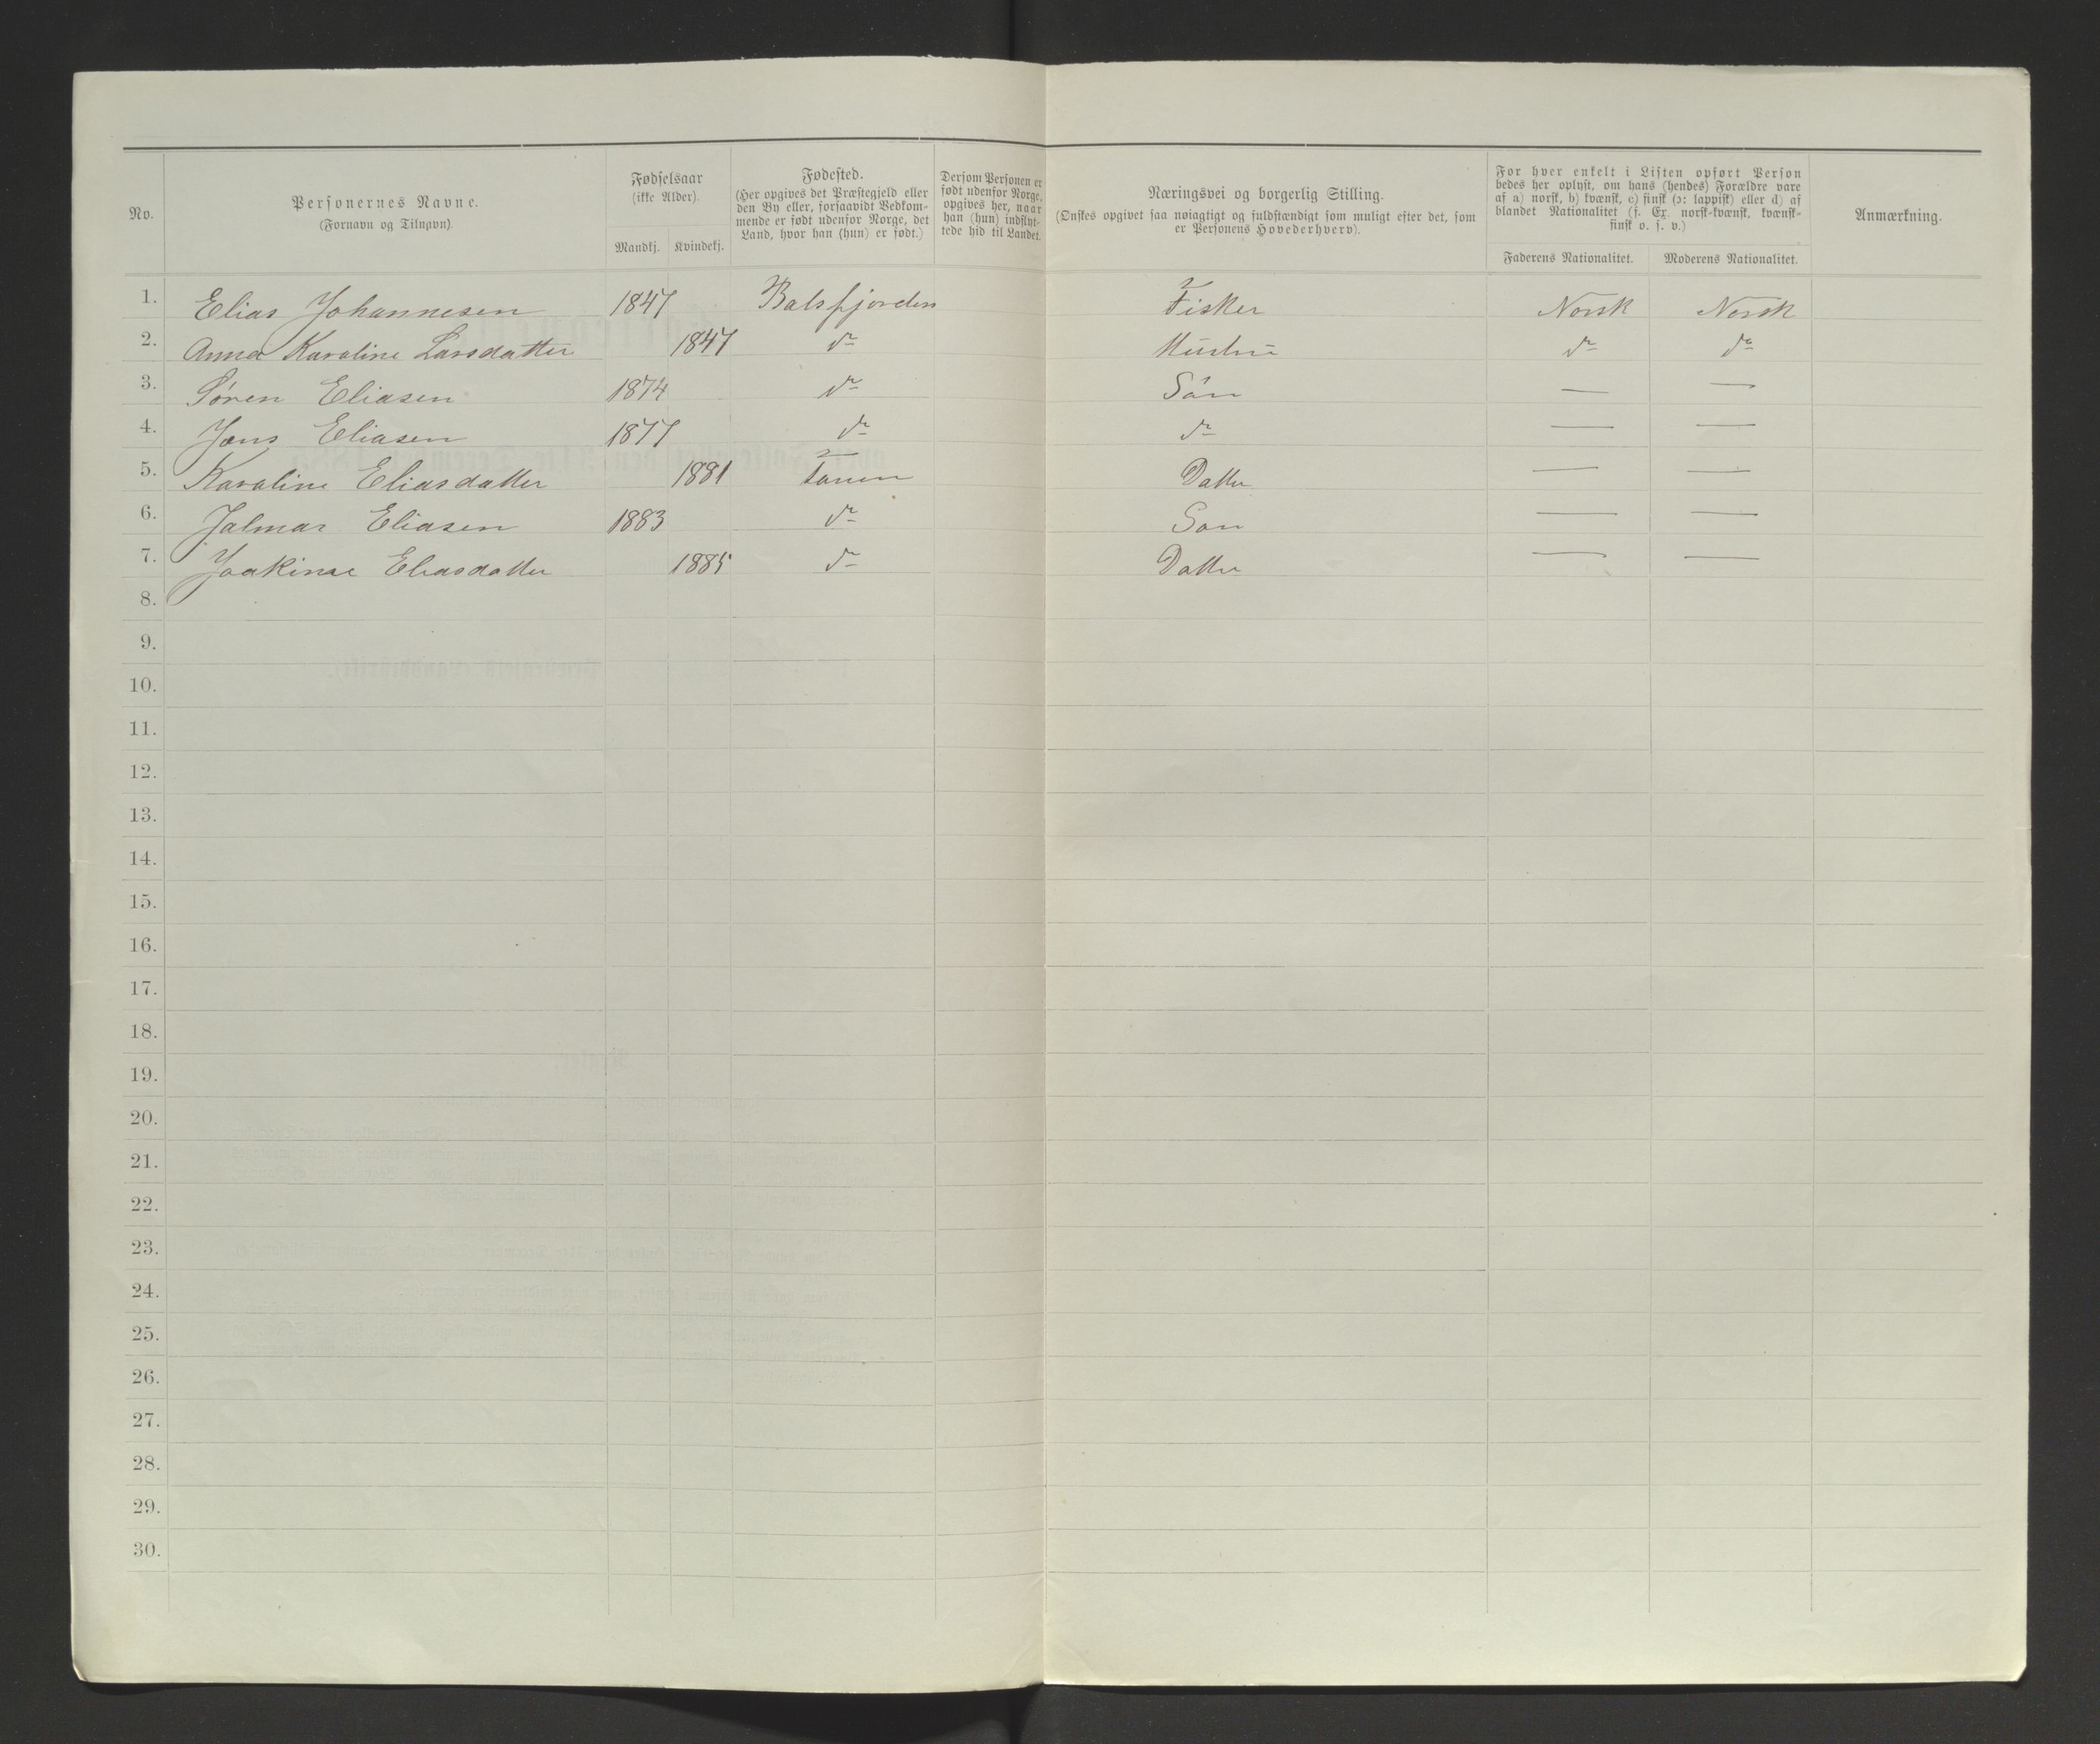 No.
Personernes Navne.
(Fornavn og Tilnavn).
Fødselsaar
(ikke Alder).
Mandkj. Kvindekj.
Fødested.
(Her opgives det Præstegjeld eller
den By eller, forsaavidt Vedkom-
mende er født udenfor Norge, det
Land, hvor han (hun) er født.)
Dersom Personen er
født udenfor Norge,
opgives her, naar
han (hun) indflyt-
tede hid til Landet.
Næringsvei og borgerlig Stilling.
(Ønskes opgivet saa nøiagtigt og fuldstændigt som muligt efter det, som
er Personens Hovederhverv).
For hver enkelt i Listen opført Person
bedes her oplyst, om hans (hendes) Forældre vare
af a) norsk, b) kvænsk, c) finsk (ɔ: lappisk) eller d) af
blandet Nationalitet (f. Ex. norsk-kvænsk, kvænsk-
finsk o. s. v.)
Faderens Nationalitet. Moderens Nationalitet.
Anmærkning.
1. Elias Johannesen 1847 Balsfjorden Fisker Norsk Norsk
2. Anna Karoline Larsdatter 1847 do Hustru do do
3. Søren Eliasen 1874 do Søn — —
4. Jens Eliasen 1877 do do — —
5. Karoline Eliasdatter 1881 Tanen Datter — —
6. Jalmar Eliasen 1883 do Søn — —
7. Joakine Eliasdatter 1885 do Datter — —
8.
9.
10.
11.
12.
13.
14.
15.
16.
17.
18.
19.
20.
21.
22.
23.
24.
25.
26.
27.
28.
29.
30.